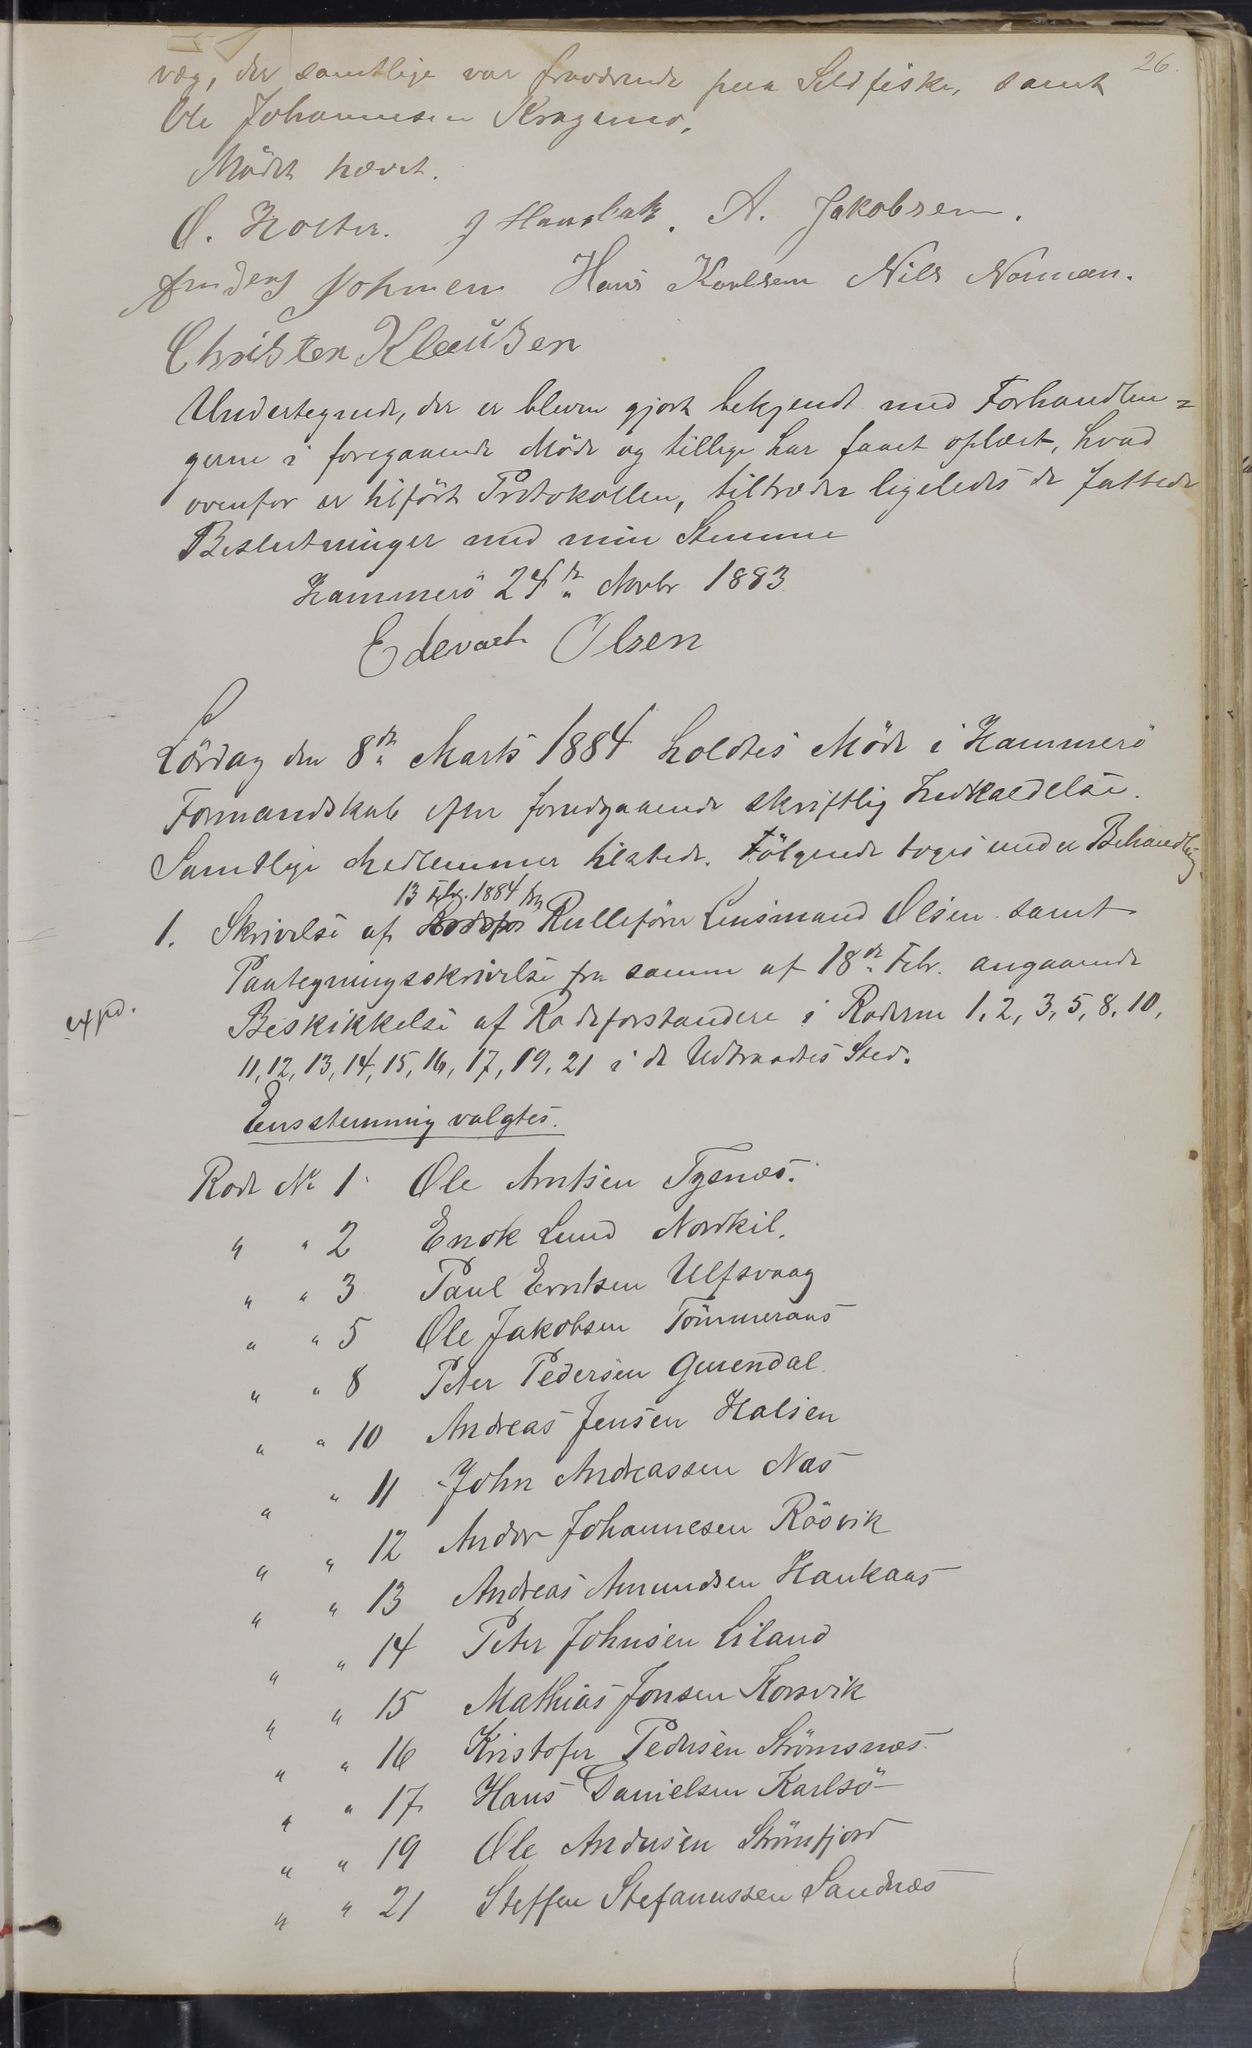 26.
væg, der samtlige var fraværende paa Sildfiske, samt
Ole Johannesen Kragemo.
Mödet hævet.
O. Holter. J Haugbak. A. Jakobsen.
Anders Johnsen Hans Karlsen Nils Norman.
Christen Klaußen
Undertegnede, der er bleven gjort bekjendt med Forhandlin=
gerne i foregaaende Möde og tillige har faaet oplæst, hvad
ovenfor er tilfört Protokollen, tiltræder ligeledes de fattede
Beslutninger med min Stemme
Hammerö 24de Novbr 1883
Edevart Olsen
Lördag den 8de Marts 1884 holdtes Möde i Hammerö
Formandskab efter forudgaaende skriftlig Indkaldelse.
Samtlige Medlemmer tilstede. Fölgende toges under Behandlig
13 Febr. 1884 fra
1. Skrivelse af Rulleförer Lensmand Olsen samt
Paategningsskrivelse fra samme af 18de Febr. angaaende
expd.
Beskikkelse af Rodeforstandere i Roderne 1, 2, 3, 5, 8, 10,
11, 12, 13, 14, 15, 16, 17, 19, 21 i de Udtraadtes Sted.
Eensstemmig valgtes.
Rode No 1 Ole Arntsen Tysnæs.
" " 2 Enok Lund Nordkil.
" " 3 Paul Erntsen Ulfsvaag
" " 5 Ole Jakobsen Tömmeraas
" " 8 Peter Pedersen
" " 10 Andreas Jensen Halsen
" " 11 John Andreassen Næs
" " 12 Andor Johannesen Rösvik
" " 13 Andreas Amundsen Haukaas
" " 14 Peter Johnsen Liland
" " 15 Mathias Jonsen Korsvik
" " 16 Kristofer Pedersen Strömsnæs
" " 17 Hans Danielsen Karlsö
" " 19 Ole Andersen Strömfjord
" " 21 Steffen Stefanussen Sandnæs